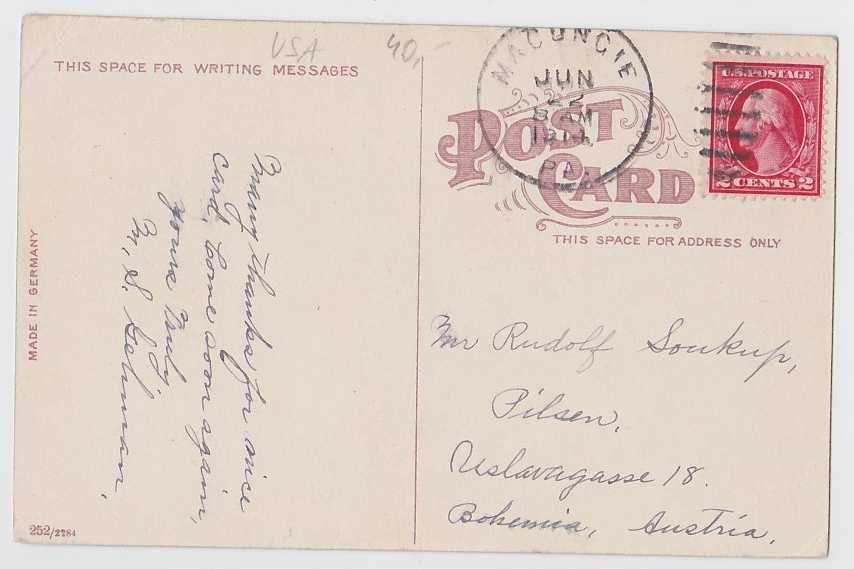 USA 40,-
THIS SPACE FOR WRITING MESSAGES
MACUNGIE
JUN
22
8 AM
PA.
U.S. POSTAGE
2 CENTS 2
POST
CARD
THIS SPACE FOR ADDRESS ONLY
Many thanks for nice
card, Come soon again,
Yours Truly
M. S. Gehman,
MADE IN GERMANY
Mr Rudolf Soukup,
Pilsen,
Uslavagasse 18.
Bohemia, Austria,
252/2284